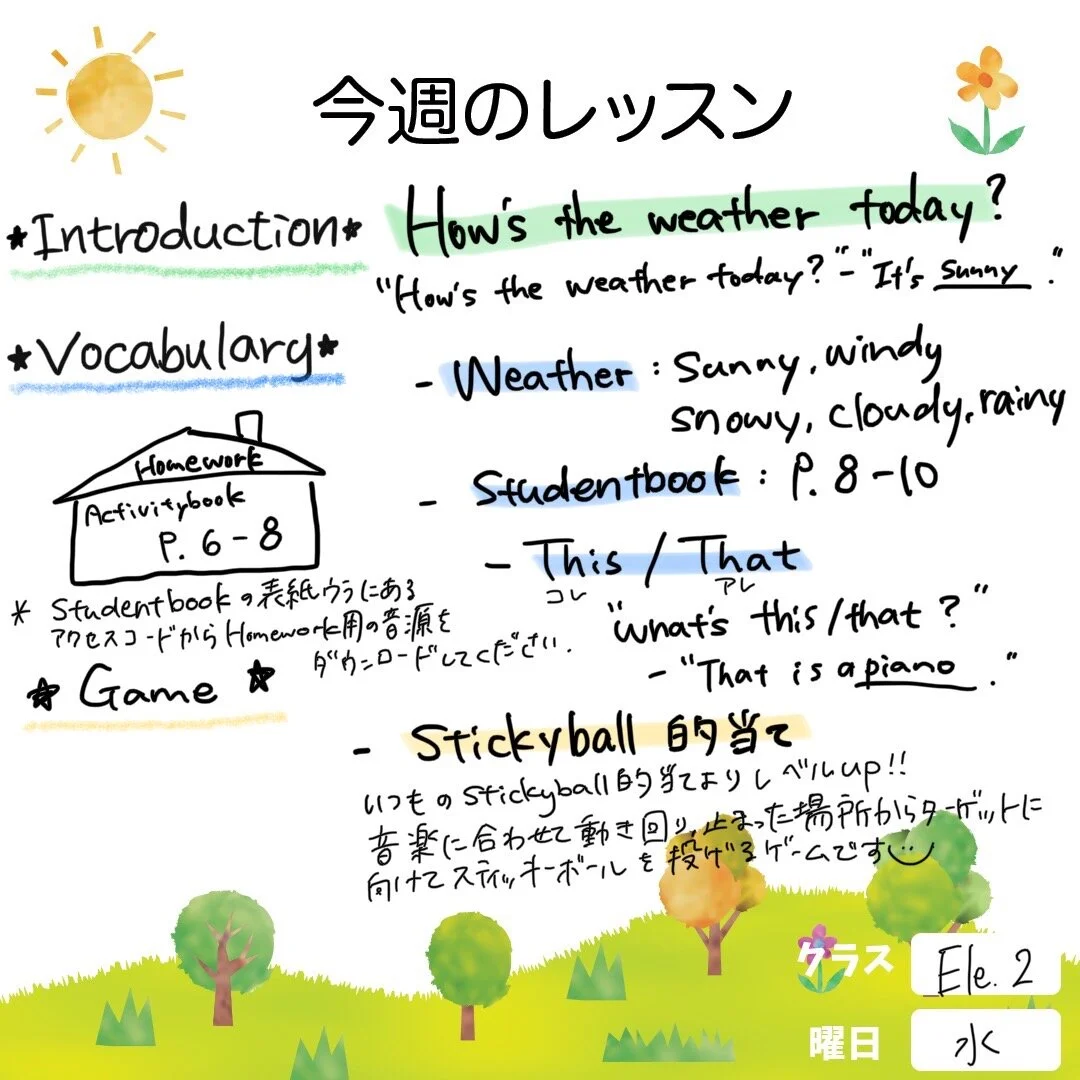 今週のレッスン
★Introduction★
How's the weather today?
"How's the weather today?" - "It's sunny ."
★Vocabulary★
- Weather : sunny, windy
snowy, cloudy, rainy
- Studentbook : P. 8-10
Homework
Activitybook
P. 6-8
- This / That
コレ アレ
"What's this/that ?"
- "That is a piano ."
* Studentbookの表紙ウラにある
アクセスコードからHomework用の音源を
ダウンロードしてください.
★ Game ★
- Stickyball 的当て
いつものStickyball的当てよりレベルup!!
音楽に合わせて動き回り,止まった場所からターゲットに
向けてスティッキーボールを投げるゲームです
クラス Ele. 2
曜日 水